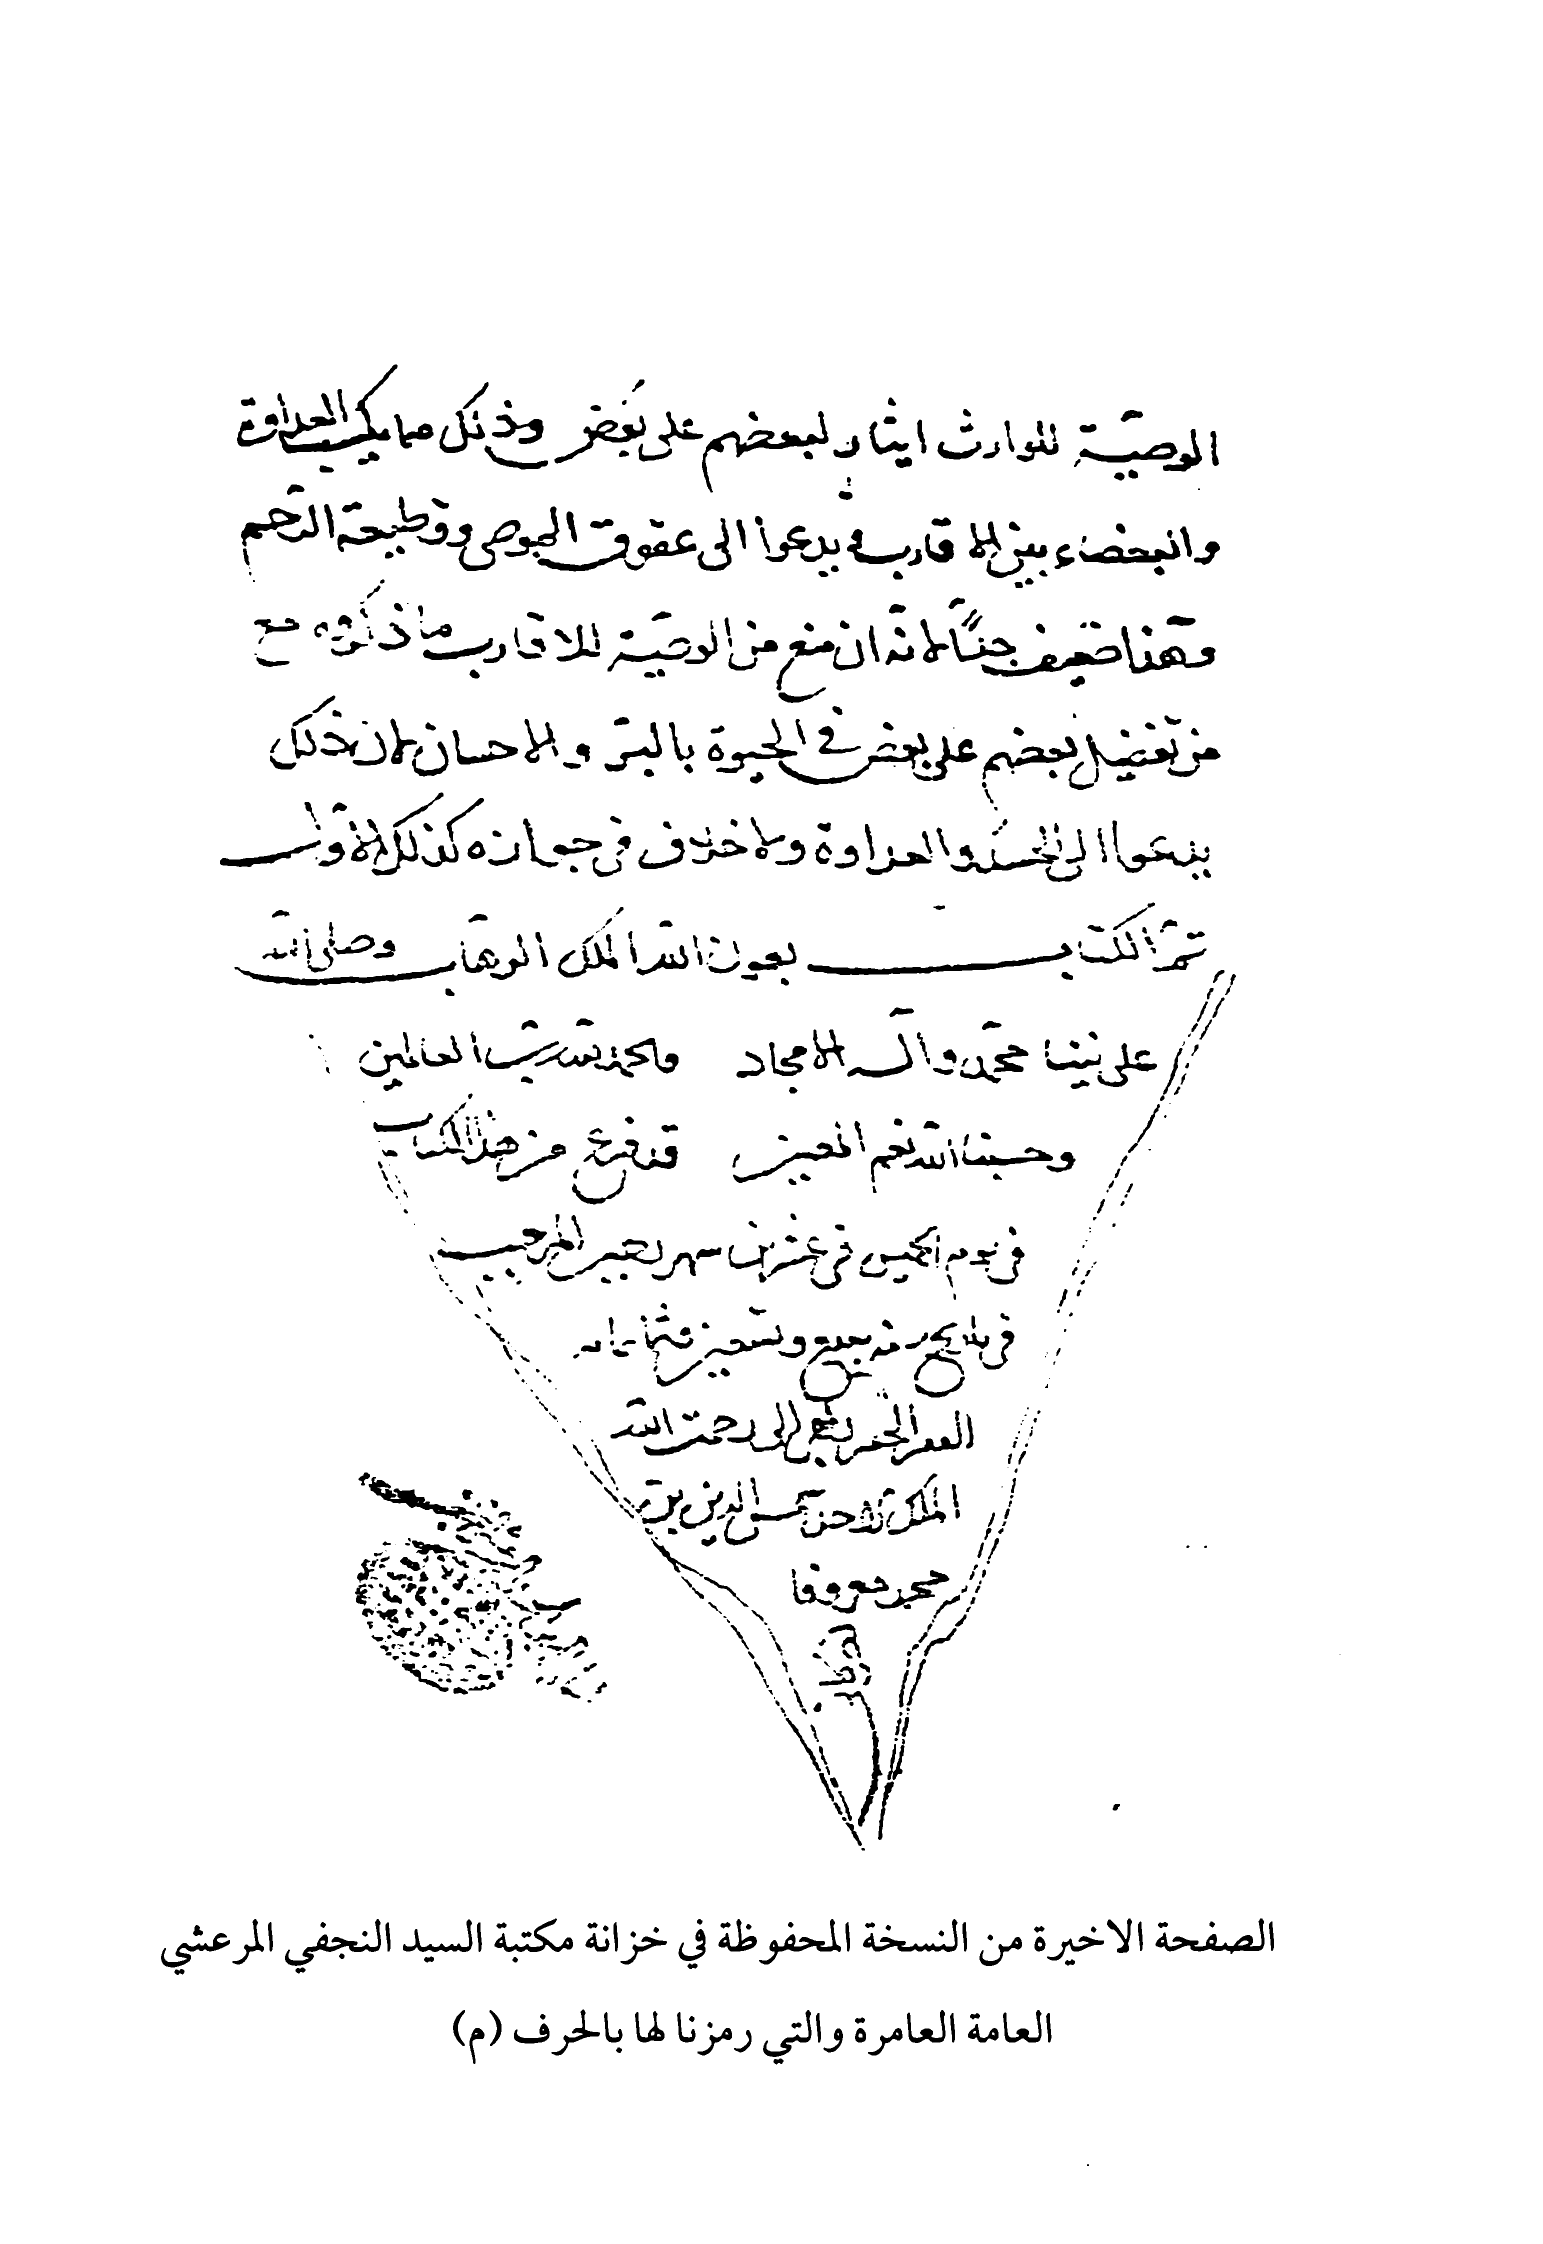 الوصيّة للوارث ايثار لبعضهم على بعض وذلك مما يكسب العداوة
والبغضاء بين الاقارب و يدعوا الى عقوق الموصى وقطيعة الرّحم
وهذا ضعيف جدّاً لانّه ان منع من الوصيّة للاقارب ما ذكروه منع
من تفضيل بعضهم على بعض في الحيوة بالبرّ والاحسان لان ذلك
يدعوا الى الحسد والعداوة ولا خلاف في جوازه كذلك الاوّل
تمّ الكتاب بعون الله الملك الوهّاب وصلى الله
على نبينا محمّد وآله الامجاد والحمد لله ربّ العالمين
وحسبنا الله نعم المعين قد فرغ من هذا الكتاب
في يوم الخميس في عشرين شهر رجب المرجب
في تاريخ سنه وتسعين وثمانمائه
الفقير الحقير الى رحمت الله
الملك شمس الدين بن
محمد
الصفحة الاخيرة من النسخة المحفوظة في خزانة مكتبة السيد النجفي المرعشي
العامة العامرة والتي رمزنا لها بالحرف (م)